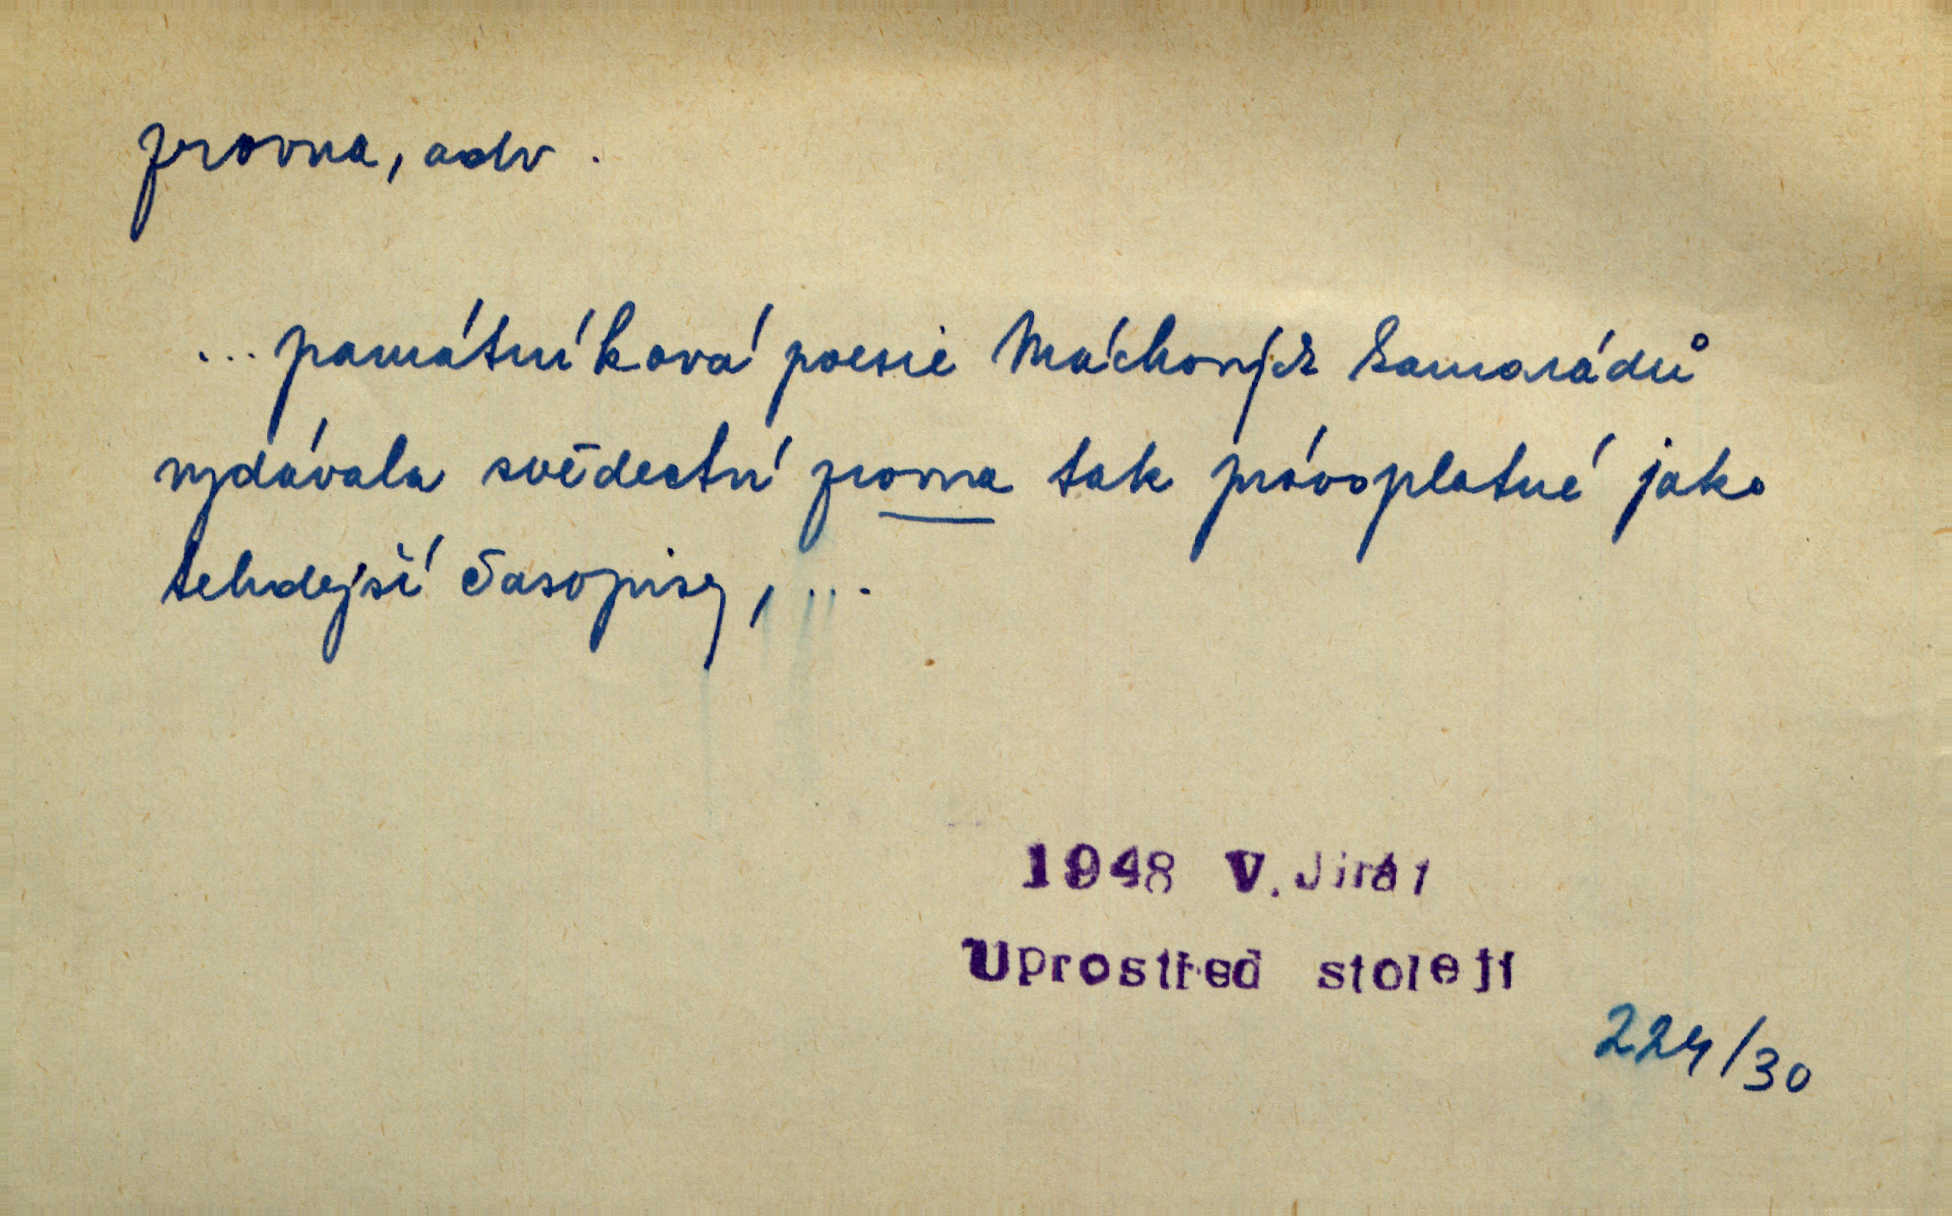 zrovna, adv.
... památníková poesie Máchových kamarádů
vydávala svědectví zrovna tak právoplatné jako
tehdejší časopisy, ...
1948 V. Jirát
Uprostřed století
224/30